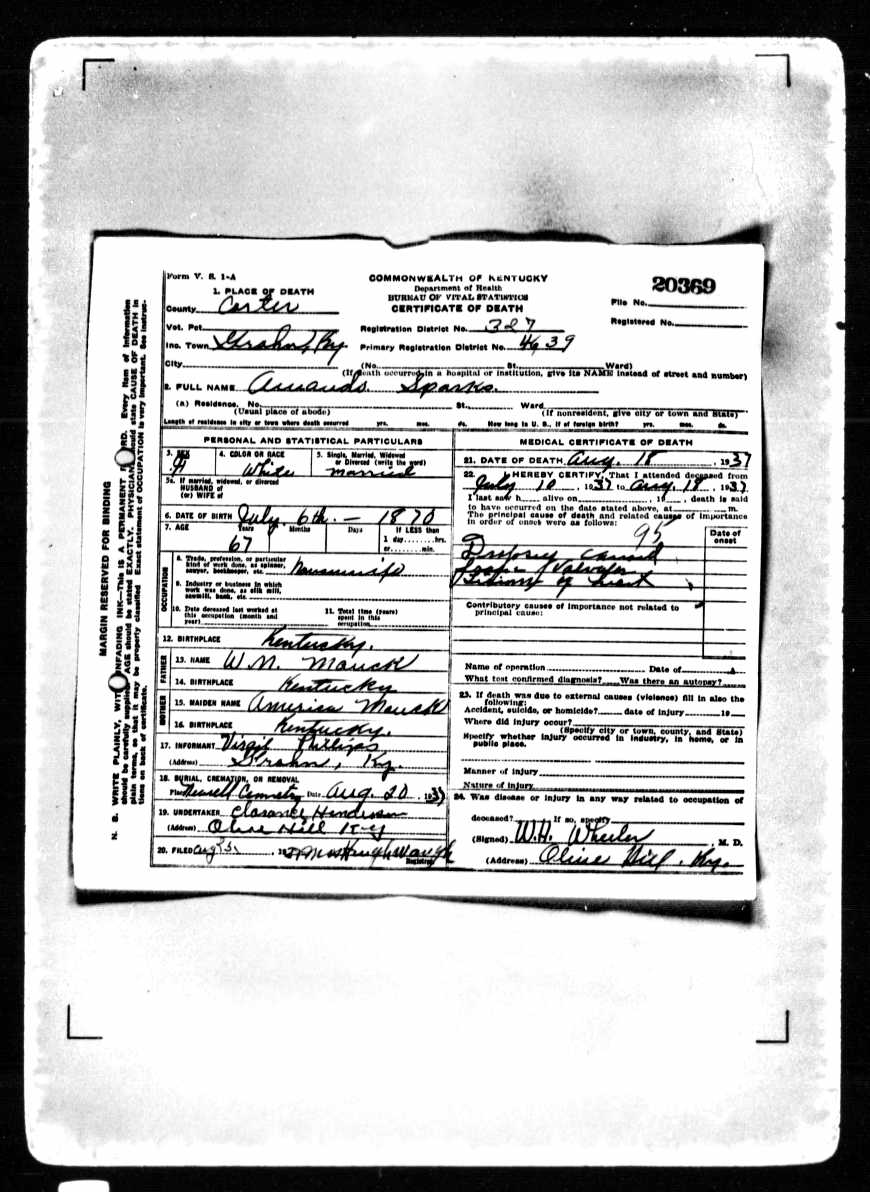 Form V. S. 1-A
COMMONWEALTH OF KENTUCKY
Department of Health
BUREAU OF VITAL STATISTICS
CERTIFICATE OF DEATH
20369
File No.
Registered No.
1. PLACE OF DEATH
County Carter
Vot. Pct.
Registration District No. 327
Inc. Town Grahn, Ky
Primary Registration District No. 4639
City (No. St. Ward)
(If death occurred in a hospital or institution, give its NAME instead of street and number)
2. FULL NAME Amanda Sparks.
(a) Residence. No. St. Ward
(Usual place of abode) (If nonresident, give city or town and State)
Length of residence in city or town where death occurred yrs. mos. ds. How long in U. S., if of foreign birth? yrs. mos. ds.
PERSONAL AND STATISTICAL PARTICULARS
3. SEX 4. COLOR OR RACE White 5. Single, Married, Widowed or Divorced (write the word) married
5a. If married, widowed, or divorced
HUSBAND of
(or) WIFE of
6. DATE OF BIRTH July 6th. - 1870
7. AGE 67 Months Days If LESS than
1 day hrs.
or min.
OCCUPATION
8. Trade, profession, or particular
kind of work done, as spinner,
sawyer, bookkeeper, etc. Housewife
9. Industry or business in which
work was done, as silk mill,
sawmill, bank, etc.
10. Date deceased last worked at
this occupation (month and
year)
11. Total time (years)
spent in this
occupation
12. BIRTHPLACE Kentucky.
FATHER
13. NAME W. N. Mauck
14. BIRTHPLACE Kentucky
MOTHER
15. MAIDEN NAME America Mauck
16. BIRTHPLACE Kentucky.
17. INFORMANT Virgil Phillips
(Address) Grahn, Ky.
18. BURIAL, CREMATION, OR REMOVAL
Place Cemetry Date Aug. 20. 1937
19. UNDERTAKER Clarance Henderson
(Address) Olive Hill Ky
20. FILED Aug Mrs Hugh Waugh
Registrar
MEDICAL CERTIFICATE OF DEATH
21. DATE OF DEATH Aug. 18, 1937
22. I HEREBY CERTIFY, That I attended deceased from
July 10, 1937 to Aug. 18, 1937
I last saw h alive on , 19 , death is said
to have occurred on the date stated above, at m.
The principal cause of death and related causes of importance
in order of onset were as follows:
95
Date of
onset
Dropsey caused
Valvular
of heart
Contributory causes of importance not related to
principal cause:
Name of operation Date of
What test confirmed diagnosis? Was there an autopsy?
23. If death was due to external causes (violence) fill in also the
following:
Accident, suicide, or homicide? date of injury 19
Where did injury occur?
(Specify city or town, county, and State)
Specify whether injury occurred in industry, in home, or in
public place.
Manner of injury
Nature of injury
24. Was disease or injury in any way related to occupation of
deceased? If so, specify
(Signed) W. H. Wheeler, M. D.
(Address) Olive Hill, Ky.
MARGIN RESERVED FOR BINDING
N. B. WRITE PLAINLY, WITH UNFADING INK—This IS A PERMANENT RECORD. Every item of information
should be carefully supplied. AGE should be stated EXACTLY. PHYSICIANS should state CAUSE OF DEATH in
plain terms, so that it may be properly classified. Exact statement of OCCUPATION is very important. See instruc-
tions on back of certificate.